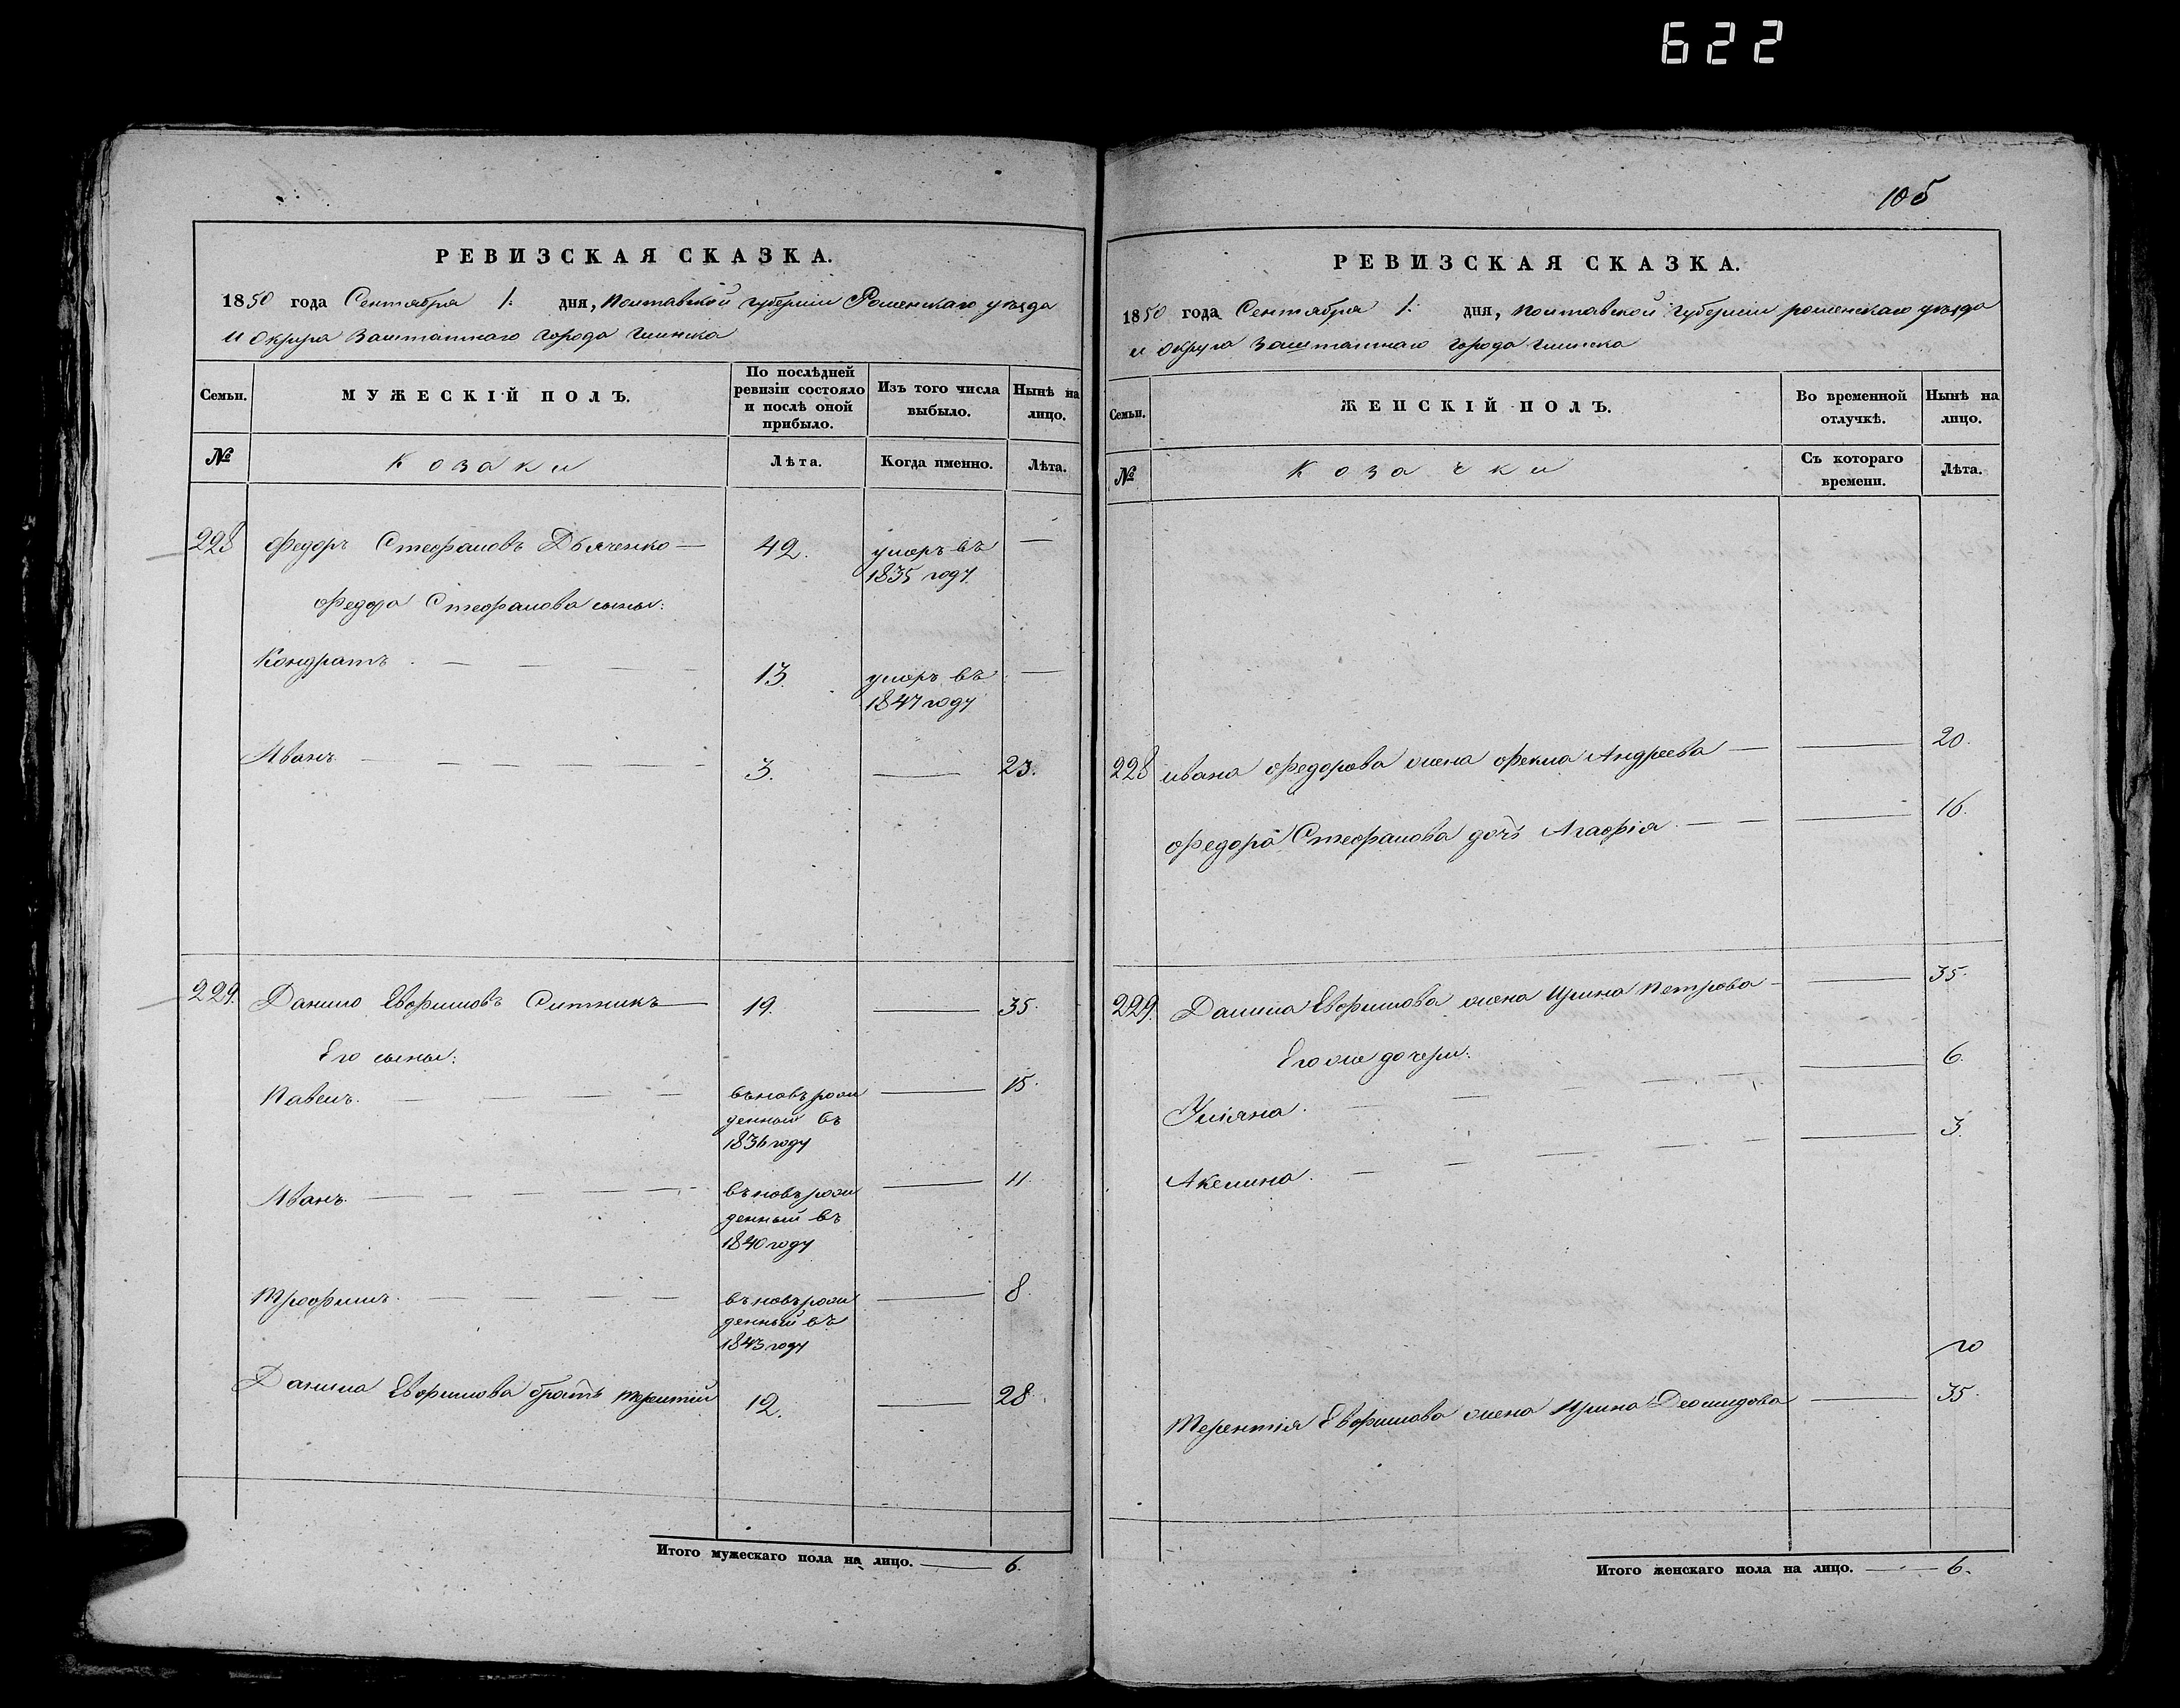 622
РЕВИЗСКАЯ СКАЗКА.
1850 года Сентября 1. дня, Полтавской губернии Роменскаго уезда
и округа Заштатнаго города Глинска
Семьи. МУЖЕСКІЙ ПОЛЪ. По послѣдней ревизіи состояло и послѣ оной прибыло. Изъ того числа выбыло. Нынѣ на лицо.
№ Козаки Лѣта. Когда именно. Лѣта.
228 Федоръ Стефановъ Дяченко — 42. умеръ въ —
1835 году
Федора Стефанова сыны:
Кондратъ 13. умеръ въ —
1847 году
Иванъ 3. — 23.
229. Данило Евфимовъ Ситникъ — 19. — 35.
Его сыны:
Павелъ вьновь рож — 15.
денный въ
1836 году
Иванъ вьновь рож — 11
денный въ
1840 году
Трофимъ вьновь рож — 8.
денный въ
1843 году
Данила Евфимова братъ Терентій 12. — 28.
Итого мужескаго пола на лицо. — 6.
105
РЕВИЗСКАЯ СКАЗКА.
1850 года Сентября 1. дня, Полтавской губернии роменскаго уезда
и округа Заштатнаго города Глинска
Семьи. ЖЕНСКІЙ ПОЛЪ. Во временной отлучкѣ. Нынѣ на лицо.
№ Козачки Съ котораго времени. Лѣта.
228 Ивана Федорова жена Фекла Андреева — — 20.
Федора Стефанова дочь Агафія — — 16.
229. Данила Евфимова жена Ирина Петрова — — 35.
Его же дочери:
Уліяна — 6.
Акелина — 3.
20
Терентія Евфимова жена Ирина Деомидова — 35.
Итого женскаго пола на лицо. — 6.